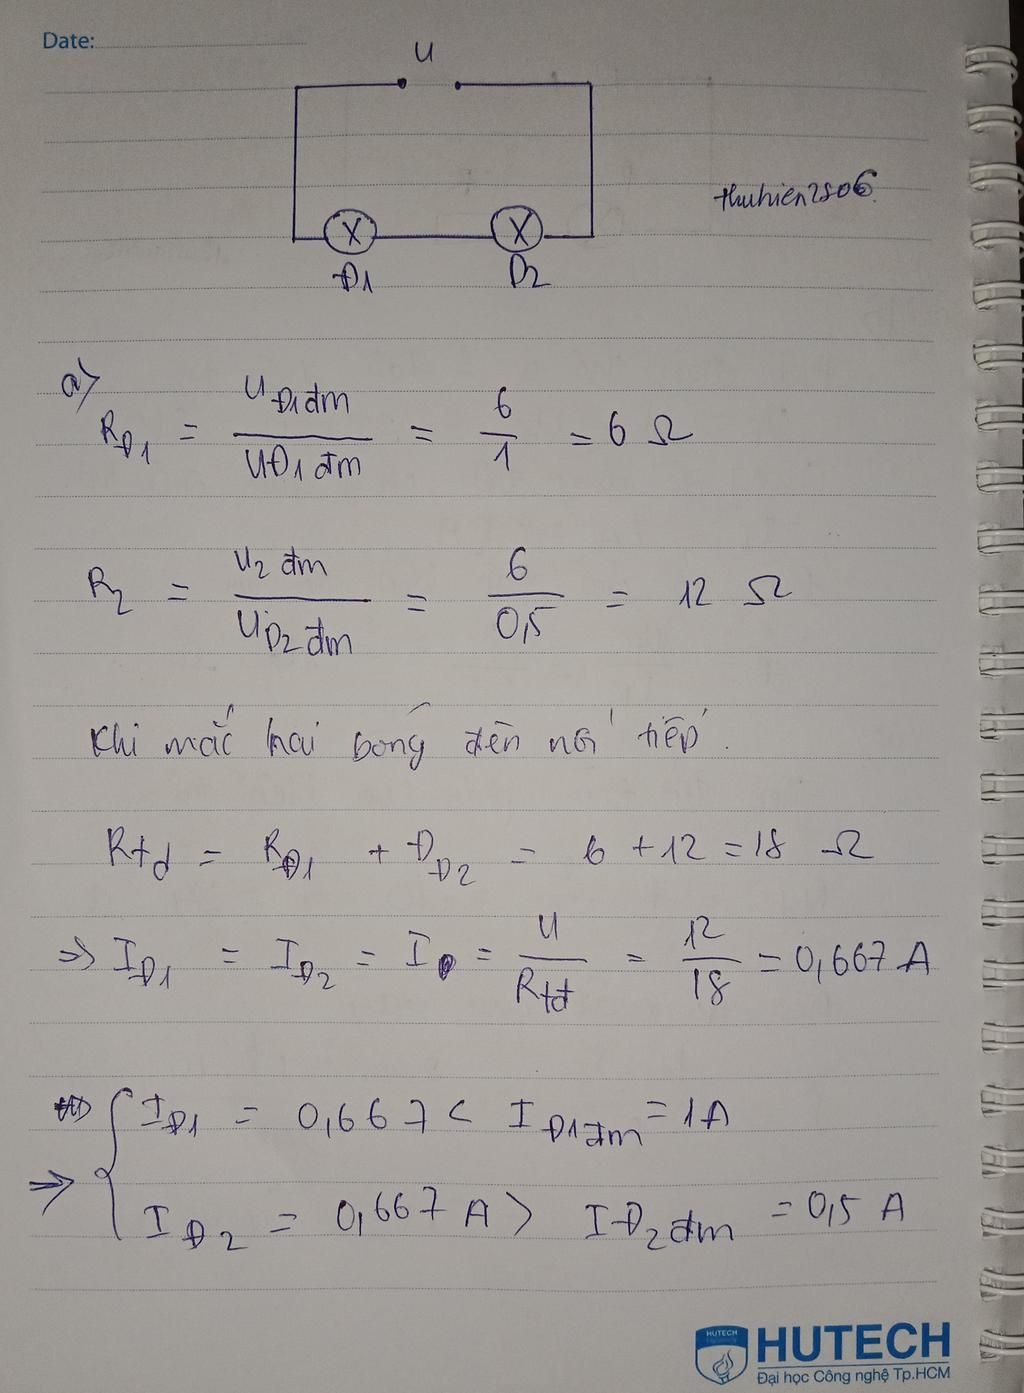 Date:
U
thuhien2806
Đ1 Đ2
a)
R_Đ1 = U_Đ1đm / U_Đ1đm = 6 / 1 = 6 Ω
R_2 = U_2 đm / U_Đ2 đm = 6 / 0,5 = 12 Ω
Khi mắc hai bóng đèn nối tiếp.
Rtđ = R_Đ1 + Đ_Đ2 = 6 + 12 = 18 Ω
=> I_Đ1 = I_Đ2 = I = U / Rtđ = 12 / 18 = 0,667 A
I_Đ1 = 0,667 < I_Đ1đm = 1A
=>
I_Đ2 = 0,667 A > I_Đ2đm = 0,5 A
HUTECH
HUTECH
Đại học Công nghệ Tp.HCM